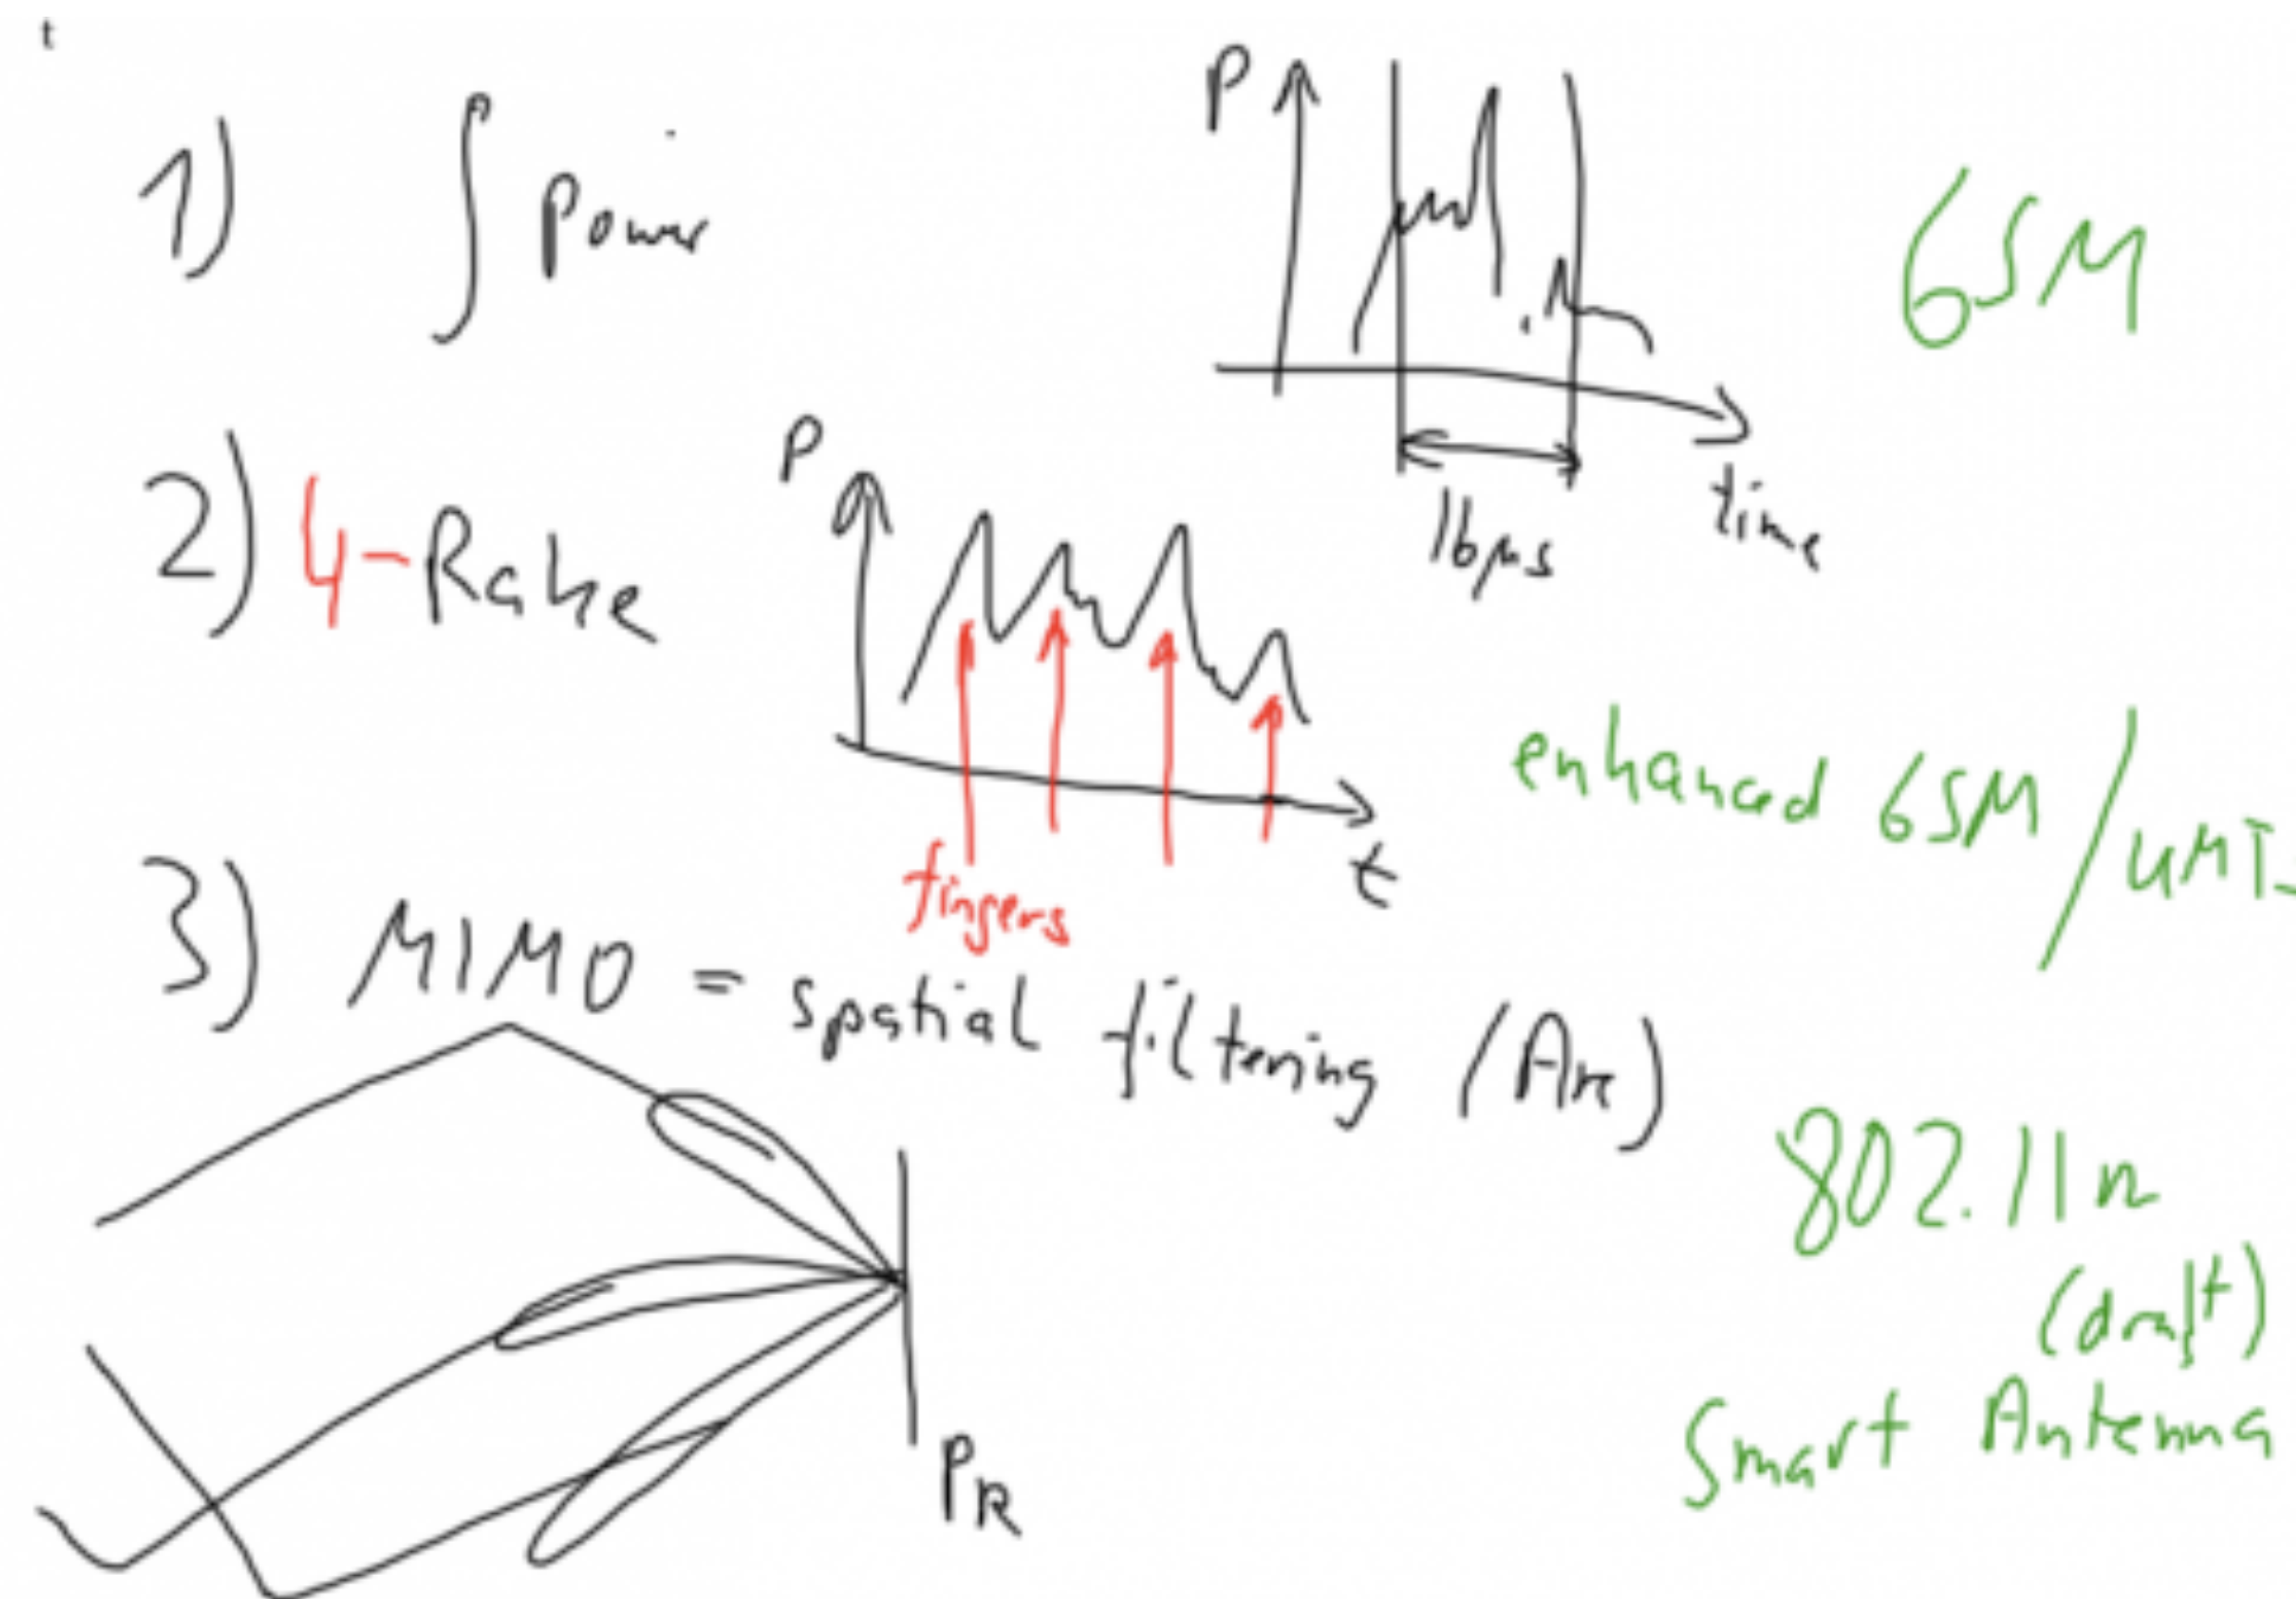 t
1) ∫ Power
P
time
16µs
GSM
2) 4-Rake
P
t
fingers
enhanced GSM/UMT
3) MIMO = spatial filtering (Arc)
PR
802.11n
(draft)
Smart Antenna